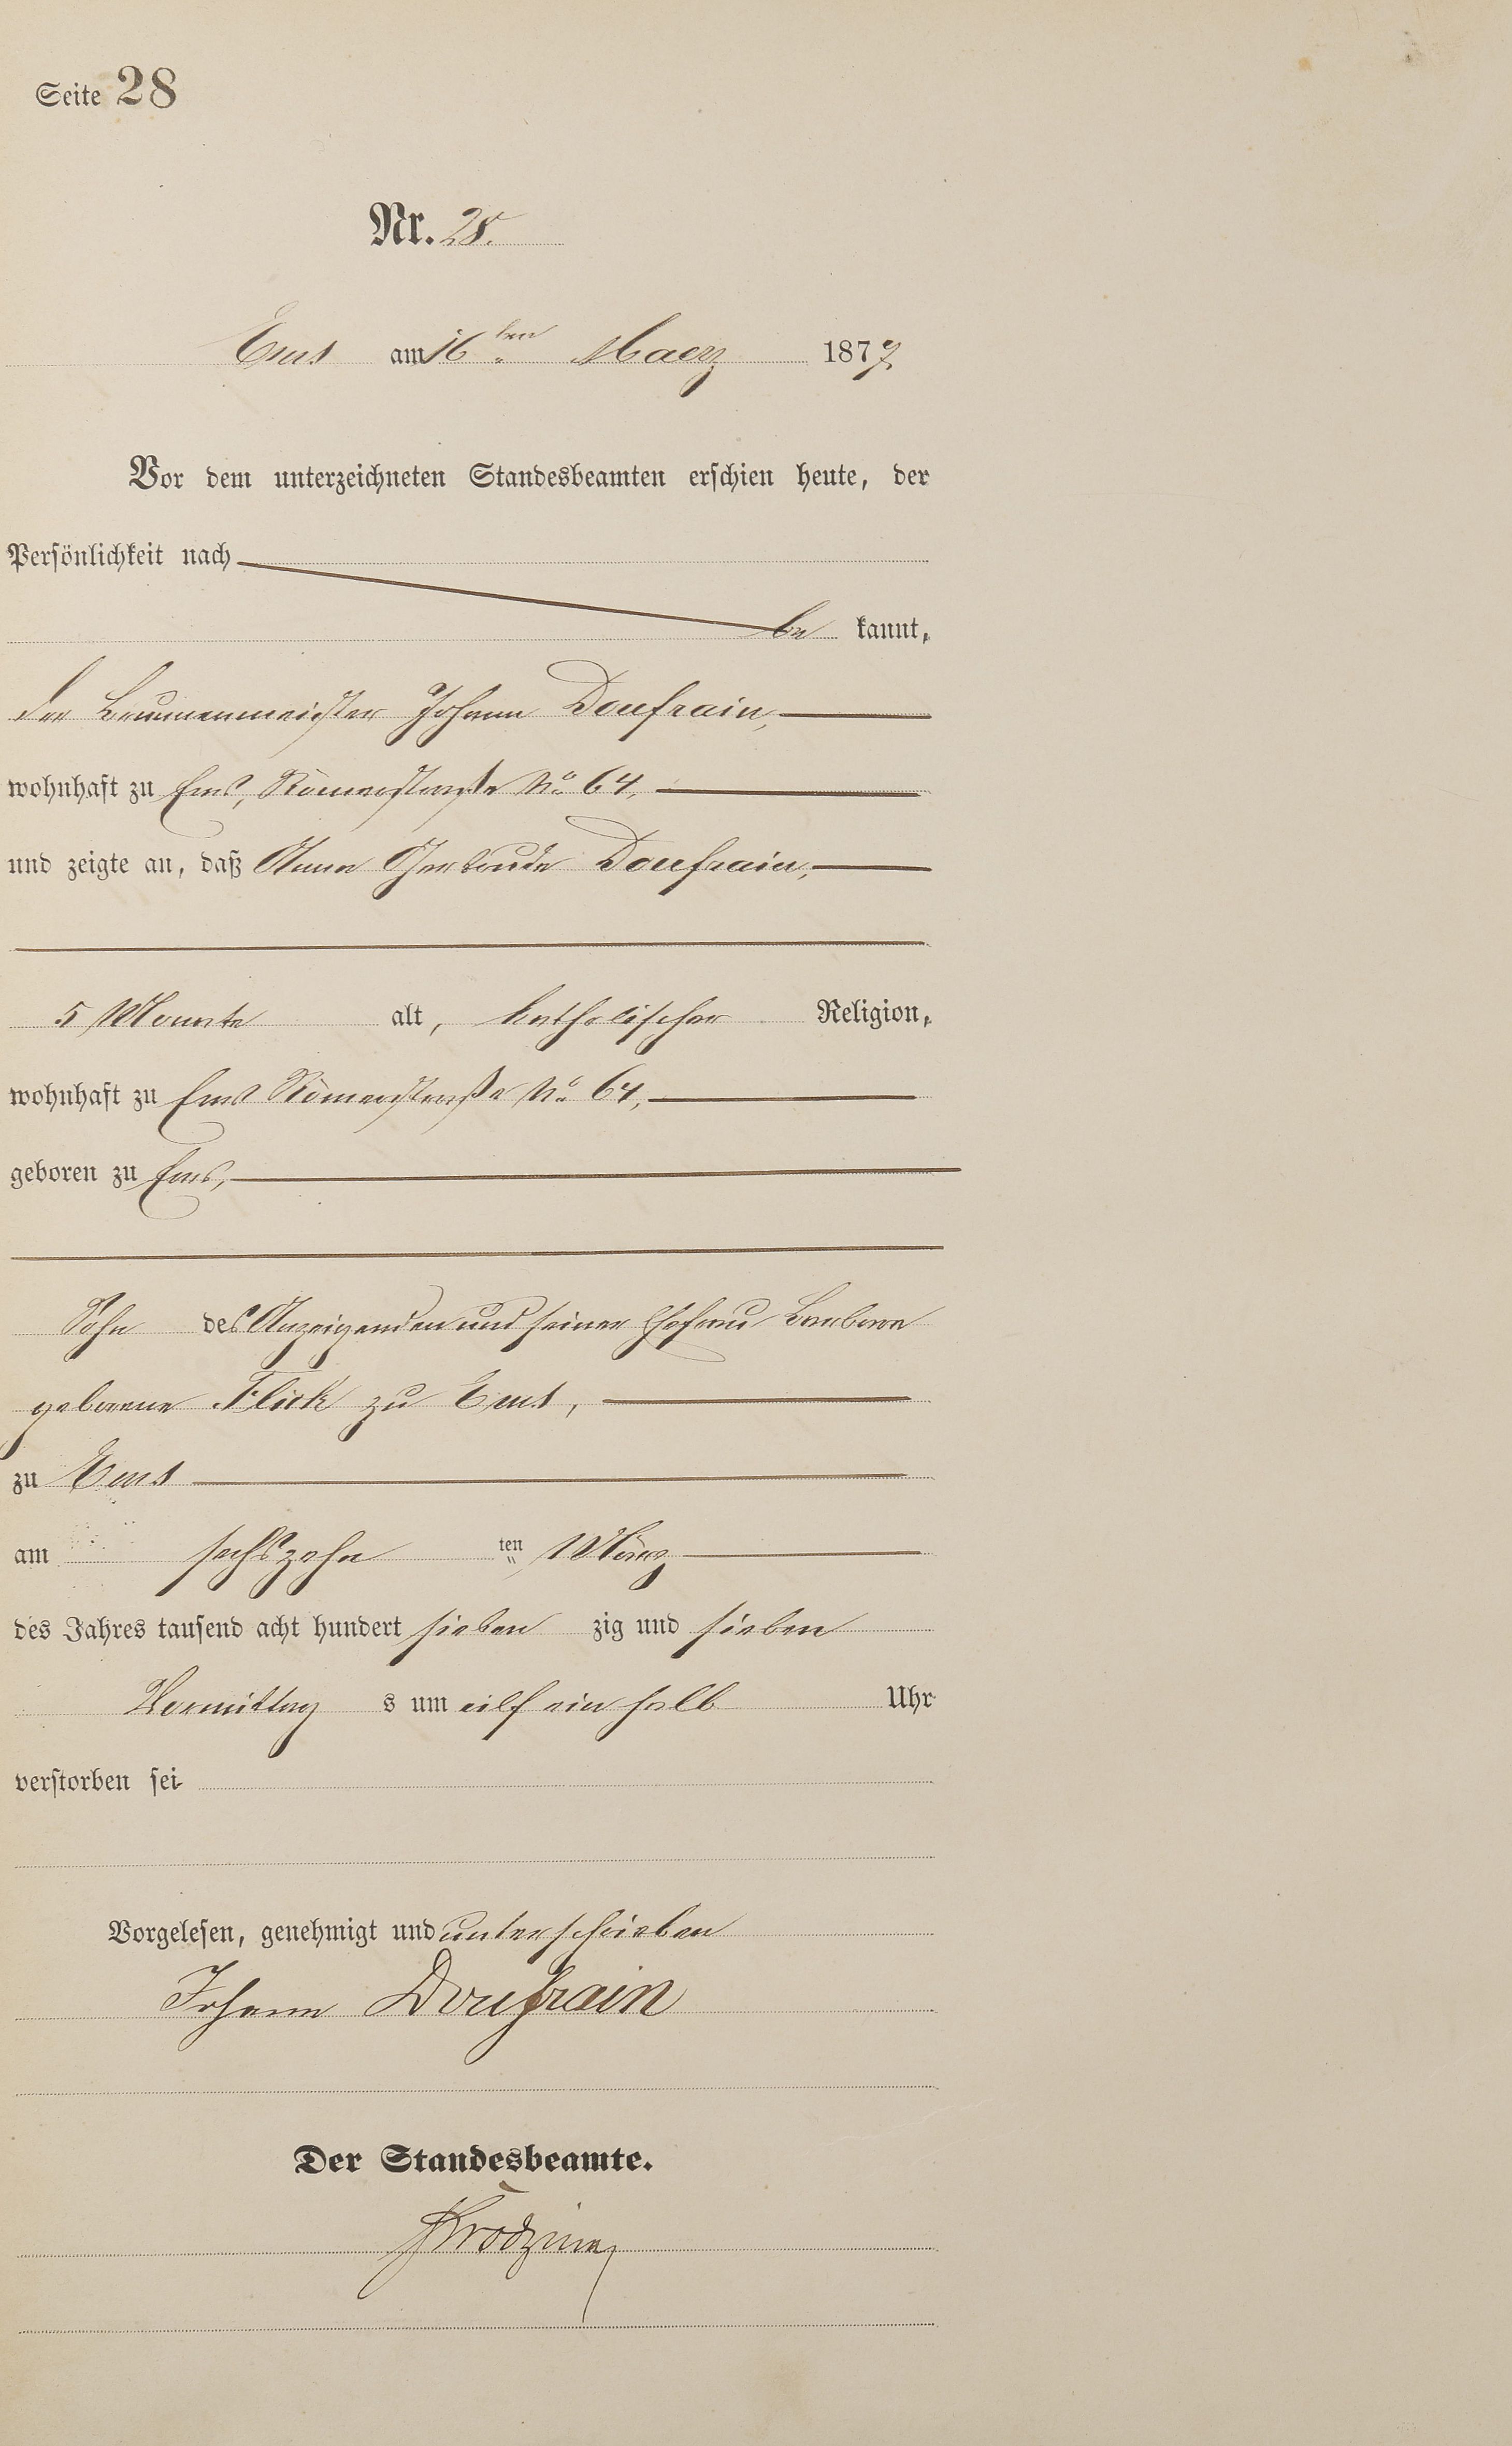 Seite 28
Nr. 28.
Ems am 16ten Maerz 1877
Vor dem unterzeichneten Standesbeamten erschien heute, der
Persönlichkeit nach
be kannt,
der Brunnenmeister Johann Doufrain,
wohnhaft zu Ems, Römerstraße No 64,
und zeigte an, daß Anna Gertrude Doufrain,
5 Monate alt, katholischer Religion,
wohnhaft zu Ems Römerstraße No 64,
geboren zu Ems,
Sohn des Anzeigenden und seiner Ehefrau Barbara
geborene Flick zu Ems,
zu Ems
am sechszehn ten März
des Jahres tausend acht hundert sieben zig und sieben
Vormittag s um eilf ein halb Uhr
verstorben sei
Vorgelesen, genehmigt und unterschrieben
Johann Doufrain
Der Standesbeamte.